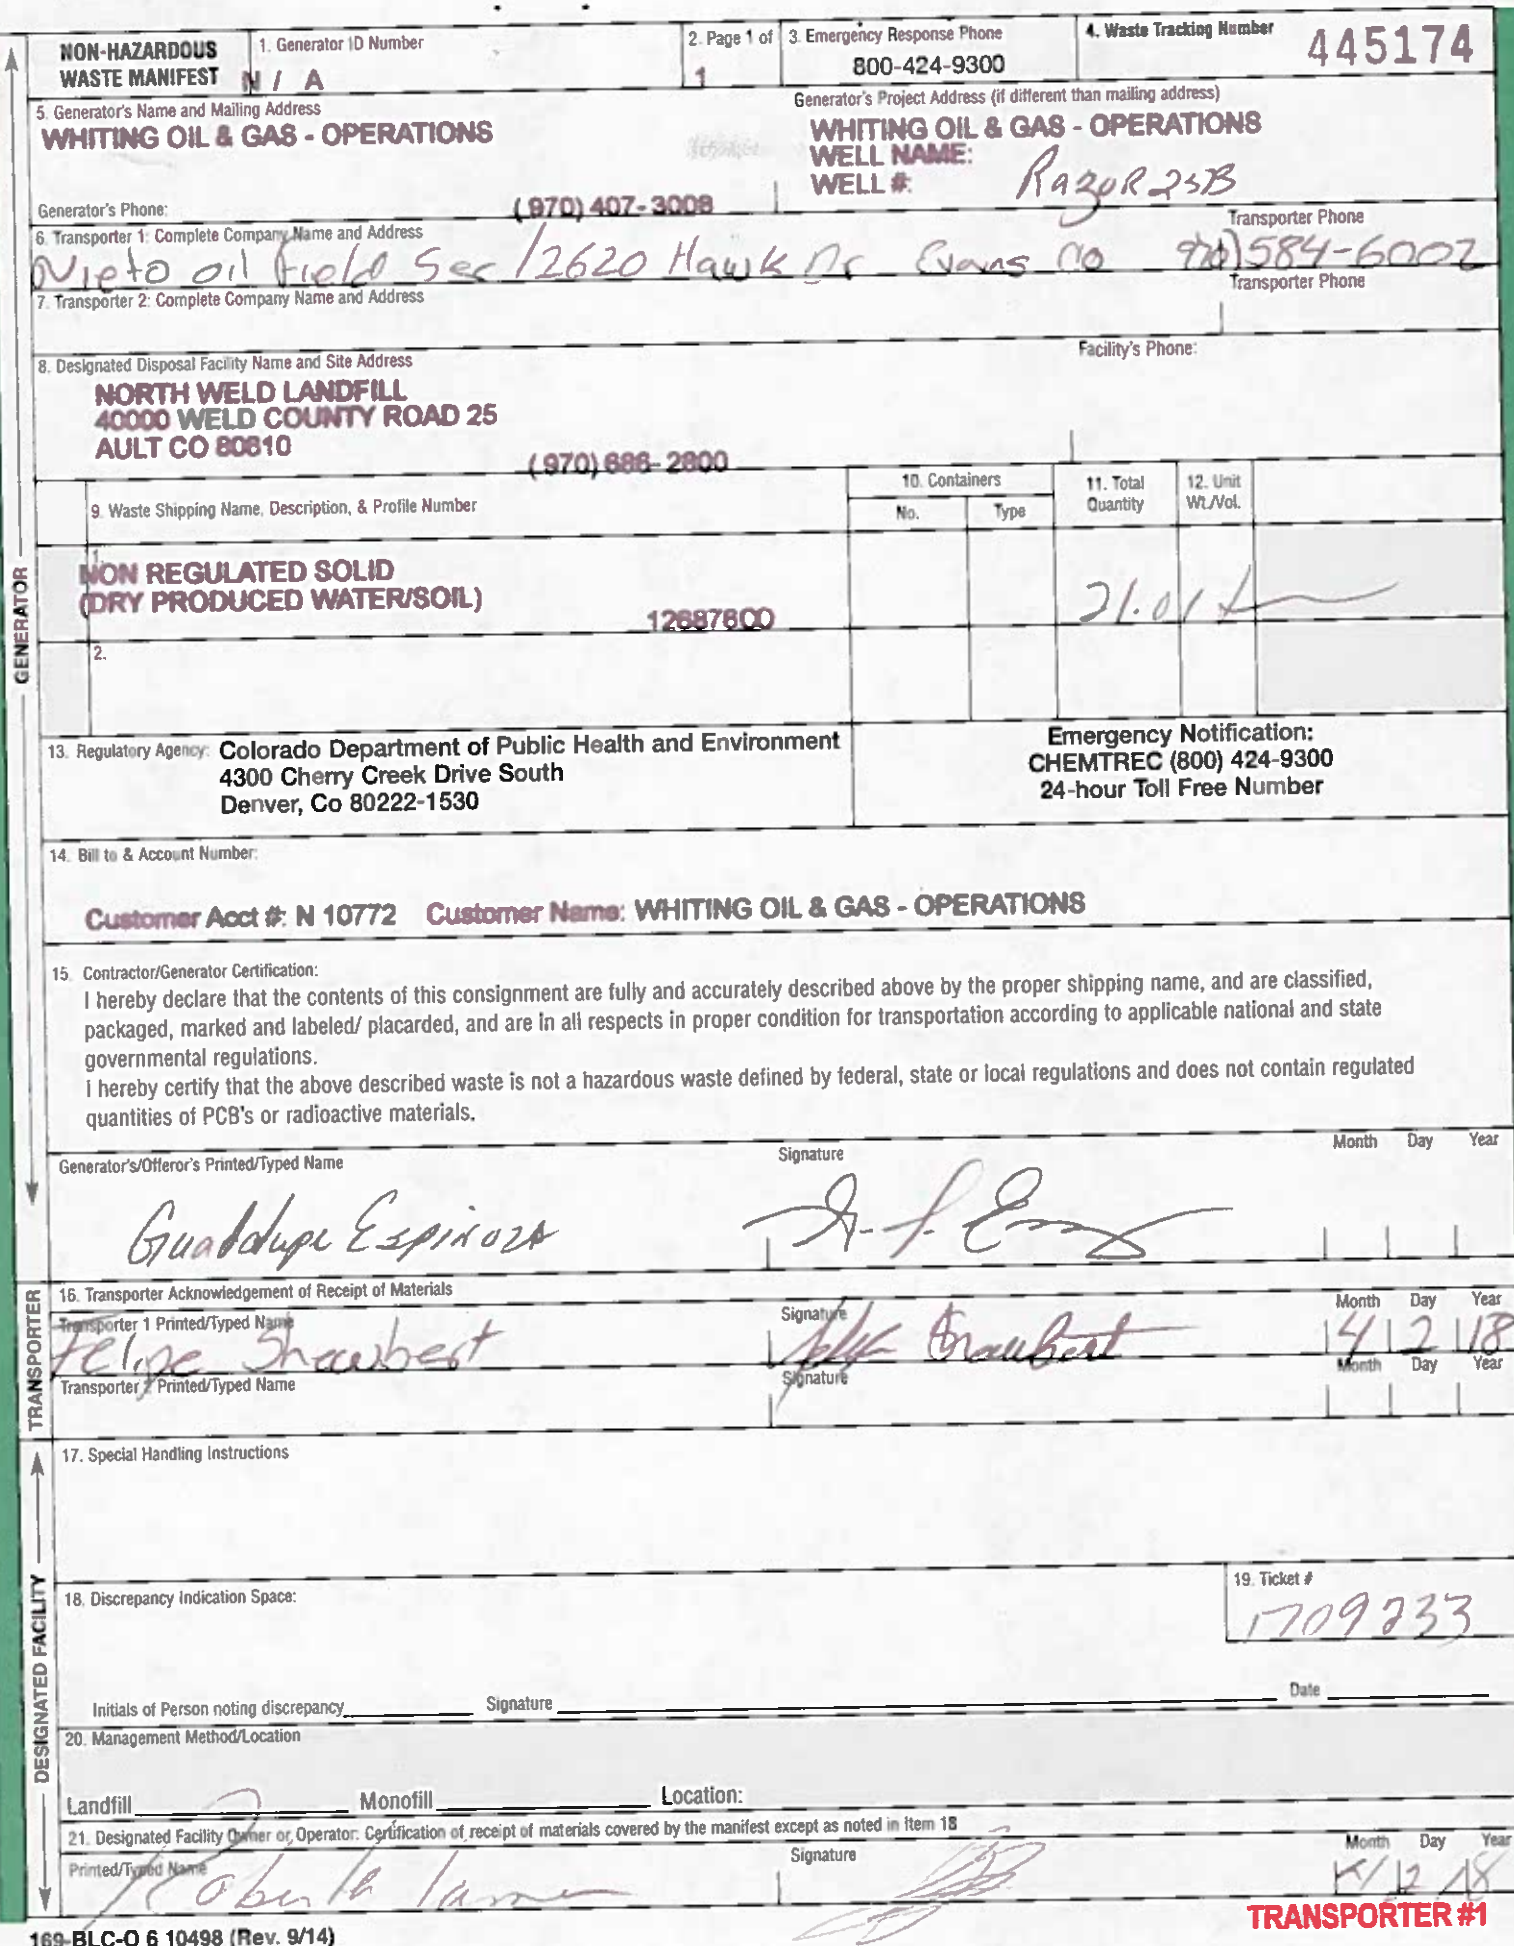 NON-HAZARDOUS WASTE MANIFEST
1. Generator ID Number
N / A
2. Page 1 of
1
3. Emergency Response Phone
800-424-9300
4. Waste Tracking Number
445174
5. Generator's Name and Mailing Address
WHITING OIL & GAS - OPERATIONS
Generator's Phone:
(970) 407-3008
Generator's Project Address (if different than mailing address)
WHITING OIL & GAS - OPERATIONS
WELL NAME:
WELL #: Razor 25B
6. Transporter 1: Complete Company Name and Address
Transporter Phone
Nieto oil Field Ser 12620 Hawk Dr Evans CO 970)584-6002
7. Transporter 2: Complete Company Name and Address
Transporter Phone
8. Designated Disposal Facility Name and Site Address
Facility's Phone:
NORTH WELD LANDFILL
40000 WELD COUNTY ROAD 25
AULT CO 80610
(970) 686-2800
9. Waste Shipping Name, Description, & Profile Number
10. Containers
No.
Type
11. Total Quantity
12. Unit Wt./Vol.
1.
NON REGULATED SOLID
(DRY PRODUCED WATER/SOIL)
12687800
21.01
2.
13. Regulatory Agency: Colorado Department of Public Health and Environment
4300 Cherry Creek Drive South
Denver, Co 80222-1530
Emergency Notification:
CHEMTREC (800) 424-9300
24-hour Toll Free Number
14. Bill to & Account Number:
Customer Acct #: N 10772 Customer Name: WHITING OIL & GAS - OPERATIONS
15. Contractor/Generator Certification:
I hereby declare that the contents of this consignment are fully and accurately described above by the proper shipping name, and are classified,
packaged, marked and labeled/ placarded, and are in all respects in proper condition for transportation according to applicable national and state
governmental regulations.
I hereby certify that the above described waste is not a hazardous waste defined by federal, state or local regulations and does not contain regulated
quantities of PCB's or radioactive materials.
Generator's/Offeror's Printed/Typed Name
Signature
Month Day Year
Guadalupe Espinoza
16. Transporter Acknowledgement of Receipt of Materials
Transporter 1 Printed/Typed Name
Signature
Month Day Year
Felipe
4 2 18
Transporter 2 Printed/Typed Name
Signature
Month Day Year
17. Special Handling Instructions
18. Discrepancy Indication Space:
19. Ticket #
1709233
Initials of Person noting discrepancy
Signature
Date
20. Management Method/Location
Landfill
Monofill
Location:
21. Designated Facility Owner or Operator: Certification of receipt of materials covered by the manifest except as noted in Item 18
Printed/Typed Name
Signature
Month Day Year
GENERATOR
TRANSPORTER
DESIGNATED FACILITY
TRANSPORTER #1
169-BLC-O 6 10498 (Rev. 9/14)